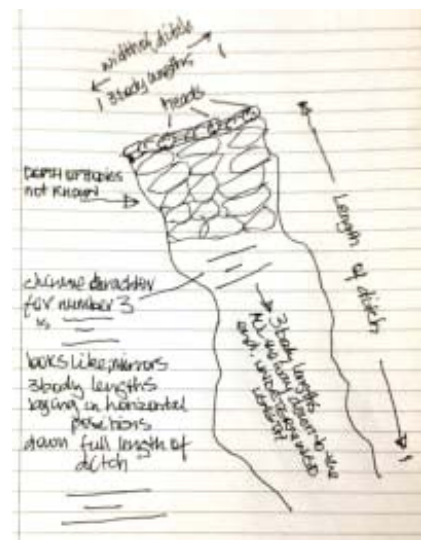 width of ditch
3 body lengths
heads
DEPTH OF BODIES
NOT KNOWN
Length of ditch
chinese character
for number 3
is
looks like mirrors
3 body lengths
laying in horizontal
positions
down full length of
ditch
3 body lengths
ALL the way down to the
end,